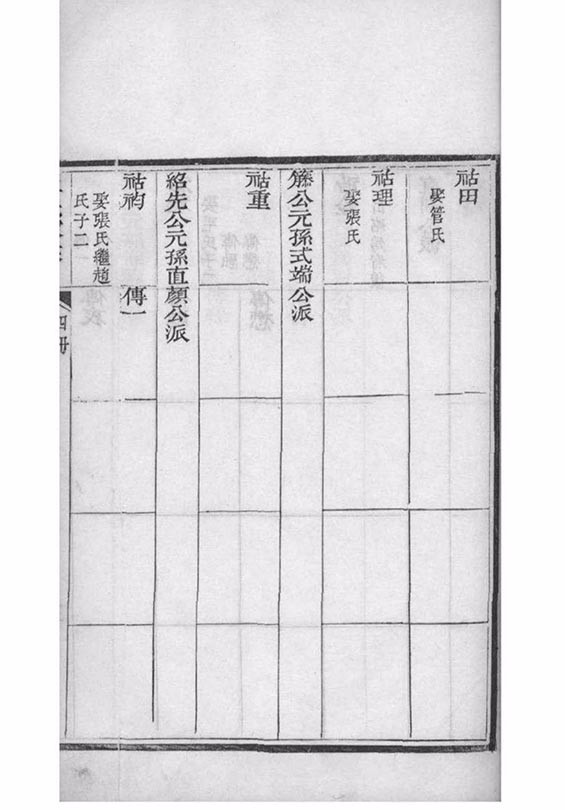 祜田
娶管氏
祜理
娶張氏
公元孫式端公派
祜重
紹先公元孫直顏公派
祜礿 傳一
娶張氏繼趙
氏子二
四册